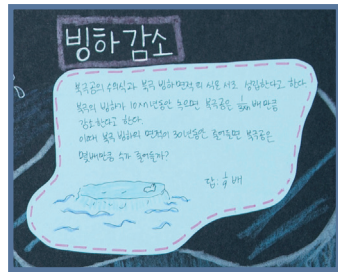 빙하 감소
북극곰의 수의식과 북극 빙하면적의 식은 서로 성립한다고 한다.
북극의 빙하가 10년동안 녹으면 북극곰은 배만큼
감소한다고 한다.
이때 북극 빙하의 면적이 30년동안 줄어들면 북극곰은
몇배만큼 수가 줄어들까?
답. 배